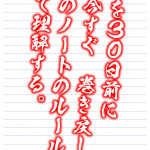 を30日前に
今すぐ 巻き戻し
のノートのルール
て理解する。